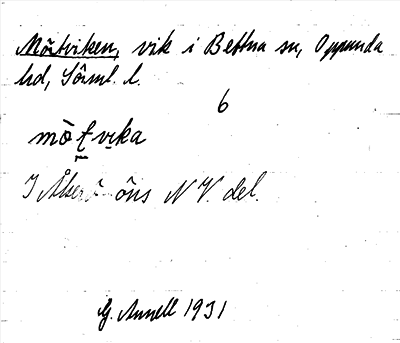 Mötviken, vik i Bettna sn, Oppunda
hd, Söml. l.
6
mò̱t̠vika
I öns N V. del.
G. Annell 1931